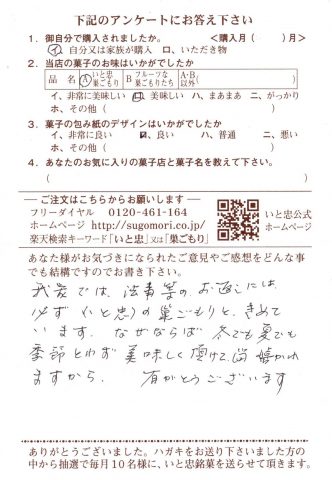 下記のアンケートにお答え下さい
1．御自分で購入されましたか。 <購入月（　　）月>
イ、自分又は家族が購入　ロ、いただき物
2．当店の菓子のお味はいかがでしたか
品　名　Ⓐいと忠巣ごもり　B フルーツな巣ごもりたち　A・B以外（　　）
イ、非常に美味しい　ロ、美味しい　ハ、まあまあ　ニ、がっかり
ホ、その他（　　）
3．菓子の包み紙のデザインはいかがでしたか
イ、非常に良い　ロ、良い　ハ、普通　ニ、悪い
ホ、その他（　　）
4．あなたのお気に入りの菓子店と菓子名を教えて下さい。
（　　）
―ご注文はこちらからお願いします―
フリーダイヤル　0120-461-164
ホームページ　http://sugomori.co.jp/
楽天検索キーワード「いと忠」又は「巣ごもり」
いと忠公式
ホームページ
あなた様がお気づきになられたご意見やご感想をどんな事
でも結構ですのでお書き下さい。
我家では、法事等のお返しには、
必ず（いと忠）の巣ごもりと、きめて
います。なぜならば 冬でも夏でも
季節とわず 美味しく頂けて、皆嬉がれ
ますから。　有がとうございます
ありがとうございました。ハガキをお送り下さいました方の
中から抽選で毎月10名様に、いと忠銘菓を送らせて頂きます。